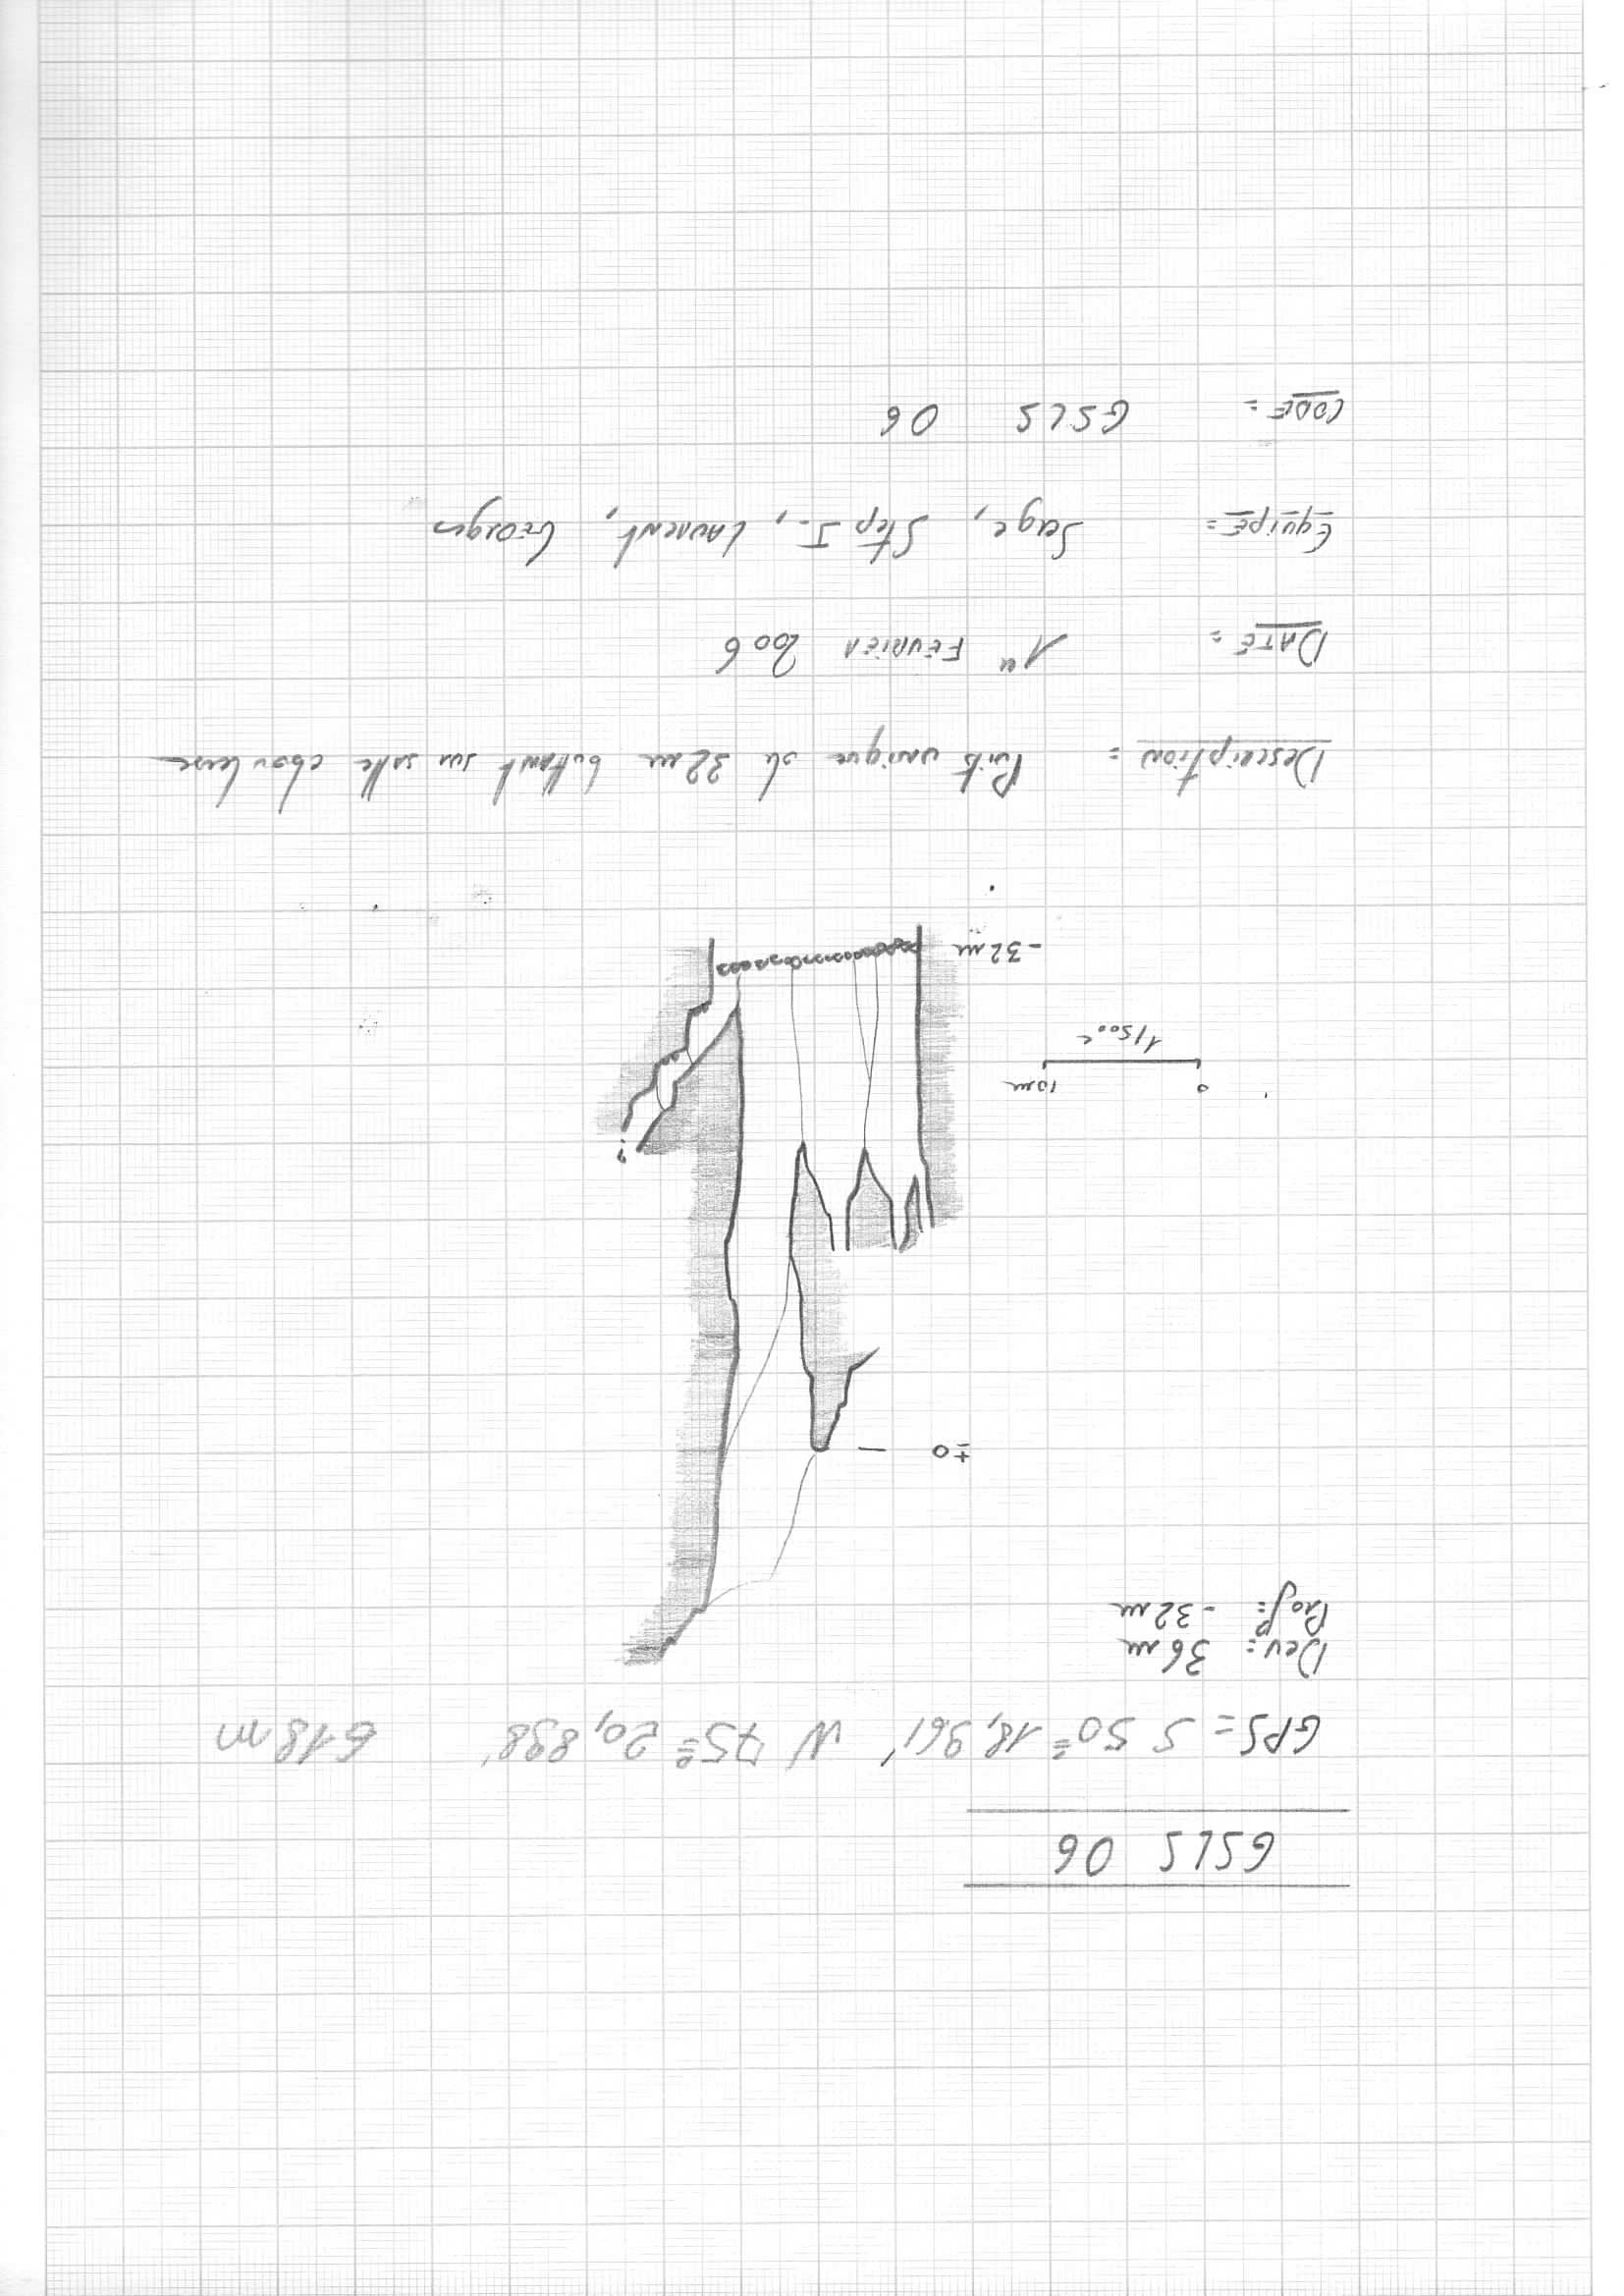 GSLS 06
GPS = S 50° 18,961' W 75° 20,898' 618m
Dev: 36m
Prof: -32m
±0
0 10m
1/500e
-32m
?
Description = Puits unique de 32m buttant sur salle ébouleuse
DATE = 1er FÉVRIER 2006
Equipe = Serge, Step J., LAURENT, Georges
CODE = GSLS 06